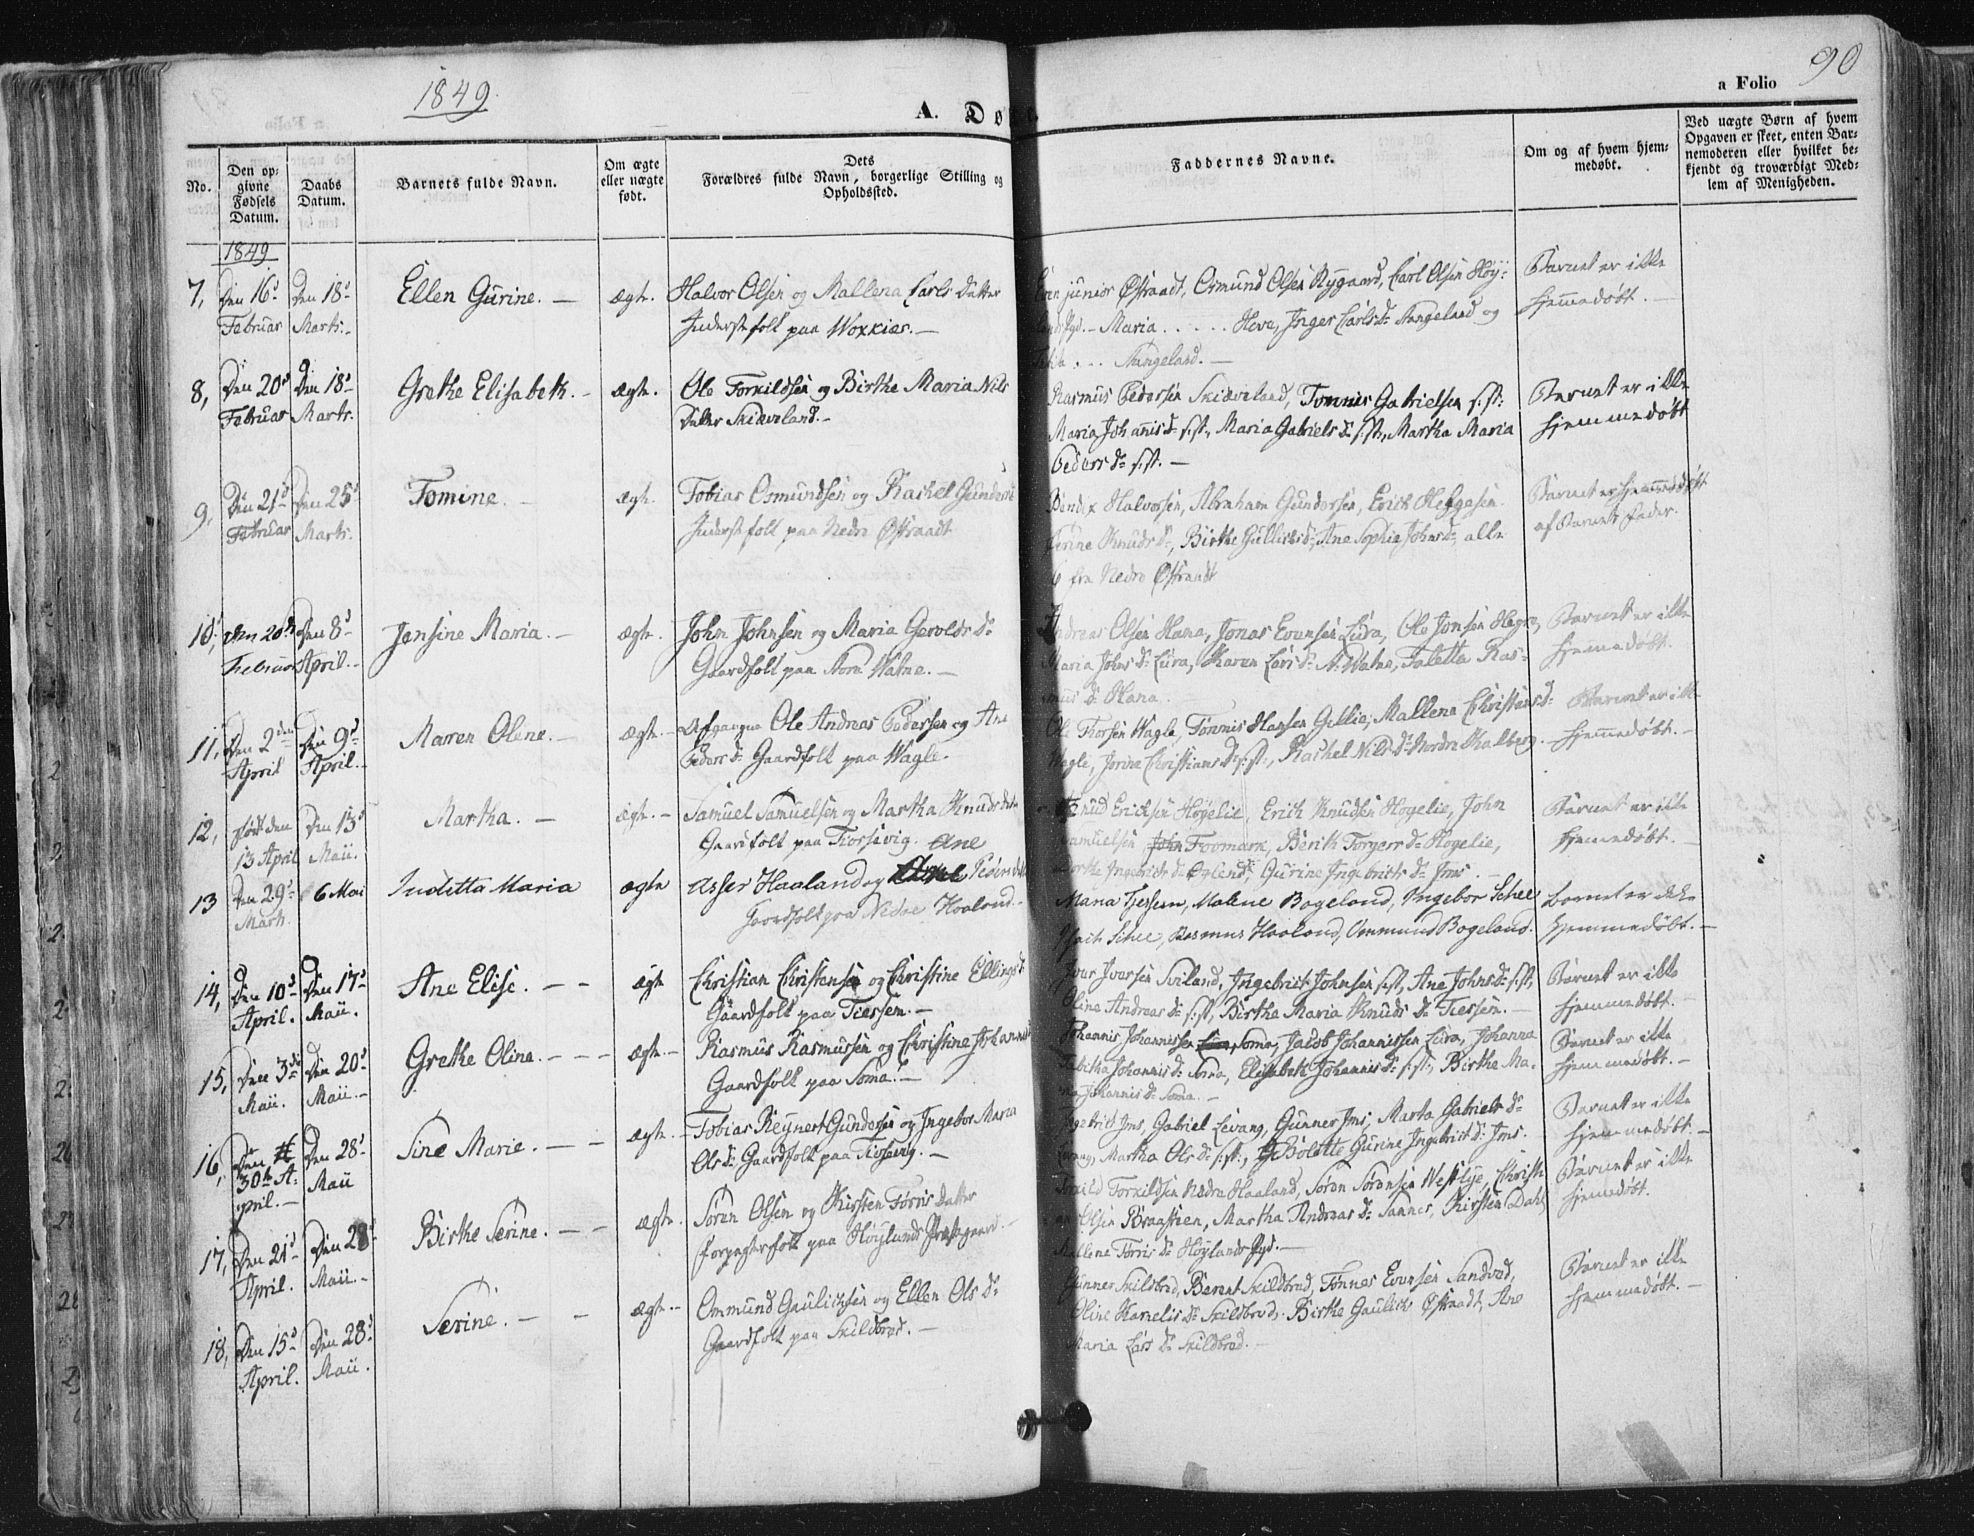 1849.
A. Døb
a Folio
90
No.
Den opgivne Fødsels Datum.
Daabs Datum.
Barnets fulde Navn.
Om ægte eller uægte født.
Dets Forældres fulde Navn, borgerlige Stilling og Opholdssted.
Faddernes Navne.
Om og af hvem hjemmedøbt.
Ved uægte Børn af hvem Opgaven er skeet, enten Barnemoderen eller hvilket bekjendt og troværdigt Medlem af Menigheden.
1849
7, Den 16d Februar
Den 18d Marts.
Ellen Gurine.
ægte.
Halvor Olsen og Mallena Carls Datter
Inderstfolk paa
junior Østraadt, Osmund Olsen Rygaard, Carl Olsen Høy-
land Pgd. - Maria ..... Hove, Inger Carls D. Stangeland og
... Stangeland.
Barnet er ikke
hjemmedøbt.
8, Den 20d Februar
Den 18d Marts.
Grethe Elisabeth.
ægte.
Ole Torkildsen og Birthe Maria Nils
Datter Skiæveland.
Rasmus Pedersen Skiæveland, Tønnes Gabrielsen s.st.
Maria Johannis D. s.st., Maria Gabriels D. s.st., Martha Maria
Peders D. s.st.
Barnet er ikke
hjemmedøbt
9, Den 21d Februar
Den 25d Marts.
Tomine.
ægte.
Tobias Osmundsen og Rachel Gunders
Inderstfolk paa Nedre Østraadt
Bendix Halvorsen, Abraham Gundersen, Erich Helgesen
Serine Knuds D., Birthe Gullichs D., Ane Sophie Johns D., alle
6 fra Nedre Østraadt
Barnet er hjemmedøbt
af Barnets Fader.
10, Den 20de Februar
Den 8d April.
Jonsine Maria.
ægte.
John Johnsen og Maria Gervolds D.
Gaardfolk paa Store Watne.
Andreas Olsen Hana, Jonas Evensen Lura, Ole Jonsen Hegre,
Maria Johns D. Lura, Karen Lars D. N. Watne, Taletta Ras-
mus D. Hana
Barnet er ikke
hjemmedøbt.
11, Den 2den April
Den 9d April.
Maren Olene.
ægte.
Afgangne Ole Andreas Pedersen og Ane
Peders D. Gaardfolk paa Wagle.
Ole Thorsen Wagle, Tønnis Hansen Gillie, Mallena Christians D.
Wagle, Jorine Christians D. s.st., Rachel Nils D. Nordre Kalberg.
Barnet er ikke
hjemmedøbt.
12, født den 13 April
Den 13d Maii.
Martha.
ægte.
Samuel Samuelsen og Martha Knuds Datter
Gaardfolk paa
Knud Ericksen Høgelie, Erich Knudsen Høgelie, John
Samuelsen Foomark, Berith Torgers D. Høgelie,
Dorthe Ingebrits D. , Gurine Ingebrits D. Jms.
Barnet er ikke
hjemmedøbt.
13 Den 29d Marts.
6 Mai
Juditta Maria
ægte
Ane
Asser Haaland og Peders Datter
Gaardfolk paa Nedre Haaland
Maria Tjessem, Malene Bogeland, Ingebor Schee
Isach Schee, Rasmus Haaland, Ommund Bogeland.
Barnet er ikke
hjemmedøbt.
14, Den 10d April.
Den 17d Maii.
Ane Elise.
ægte
Christian Christensen og Christine Ellings D.
Gaardfolk paa Tiessem.
Iver Iversen Sviland, Ingebrit Johnsen s.st., Ane Johns D. s.st,
Oline Andreas D. s.st, Birtha Maria Knuds D. Tiessem.
Barnet er ikke
hjemmedøbt.
15, Den 3de Maii.
Den 20d Maii.
Grethe Oline.
ægte.
Rasmus Rasmussen og Christine Johannis
Gaardfolk paa Soma.
Johannis Johannissen Soma, Jacob Johannissen Lura, Johanna
Tabitha Johannis D. Soma, Elisabeth Johannis D. s.st., Birthe Ma-
ria Johannis D. Soma.
Barnet er ikke
hjemmedøbt.
16, Den 30te April.
Den 28d Maii
Sine Marie.
ægte.
Tobias Reynert Gundersen og Ingebor Maria
Ols D. Gaardfolk paa
Ingebrit Jms, Gabriel Levang, Gunner Jms, Marta Gabriels D.
Levang, Martha Ols D. s.st., Bolette Gurine Ingebrit D. Jms.
Barnet er ikke
hjemmedøbt.
17, Den 21d April.
Den 28d Maii.
Birthe Serine.
ægte.
Søren Olsen og Kirsten Tørris Datter
forpagterfolk paa Høylands Præstegaard.
Torkild Torkildsen Nedre Haaland, Søren Sørensen Westlye, Christi-
an Olsen Braastien, Martha Andreas D. Sannes, Kirsten Dahl
Mallene Tørris D. Høylands Pgd.
Barnet er ikke
hjemmedøbt.
18, Den 15d April.
Den 28d Maii.
Serine.
ægte.
Ommund Gaulichsen og Ellen Ols D.
Gaardfolk paa Skildbred.
Gunner Skildbred, Berent Skildbred, Tønnes Evensen Sandved,
Oline Kornelis D. Skildbred, Birthe Gaulichs Østraadt, Ane
Maria Lars D. Skildbred.
Barnet er ikke
hjemmedøbt.